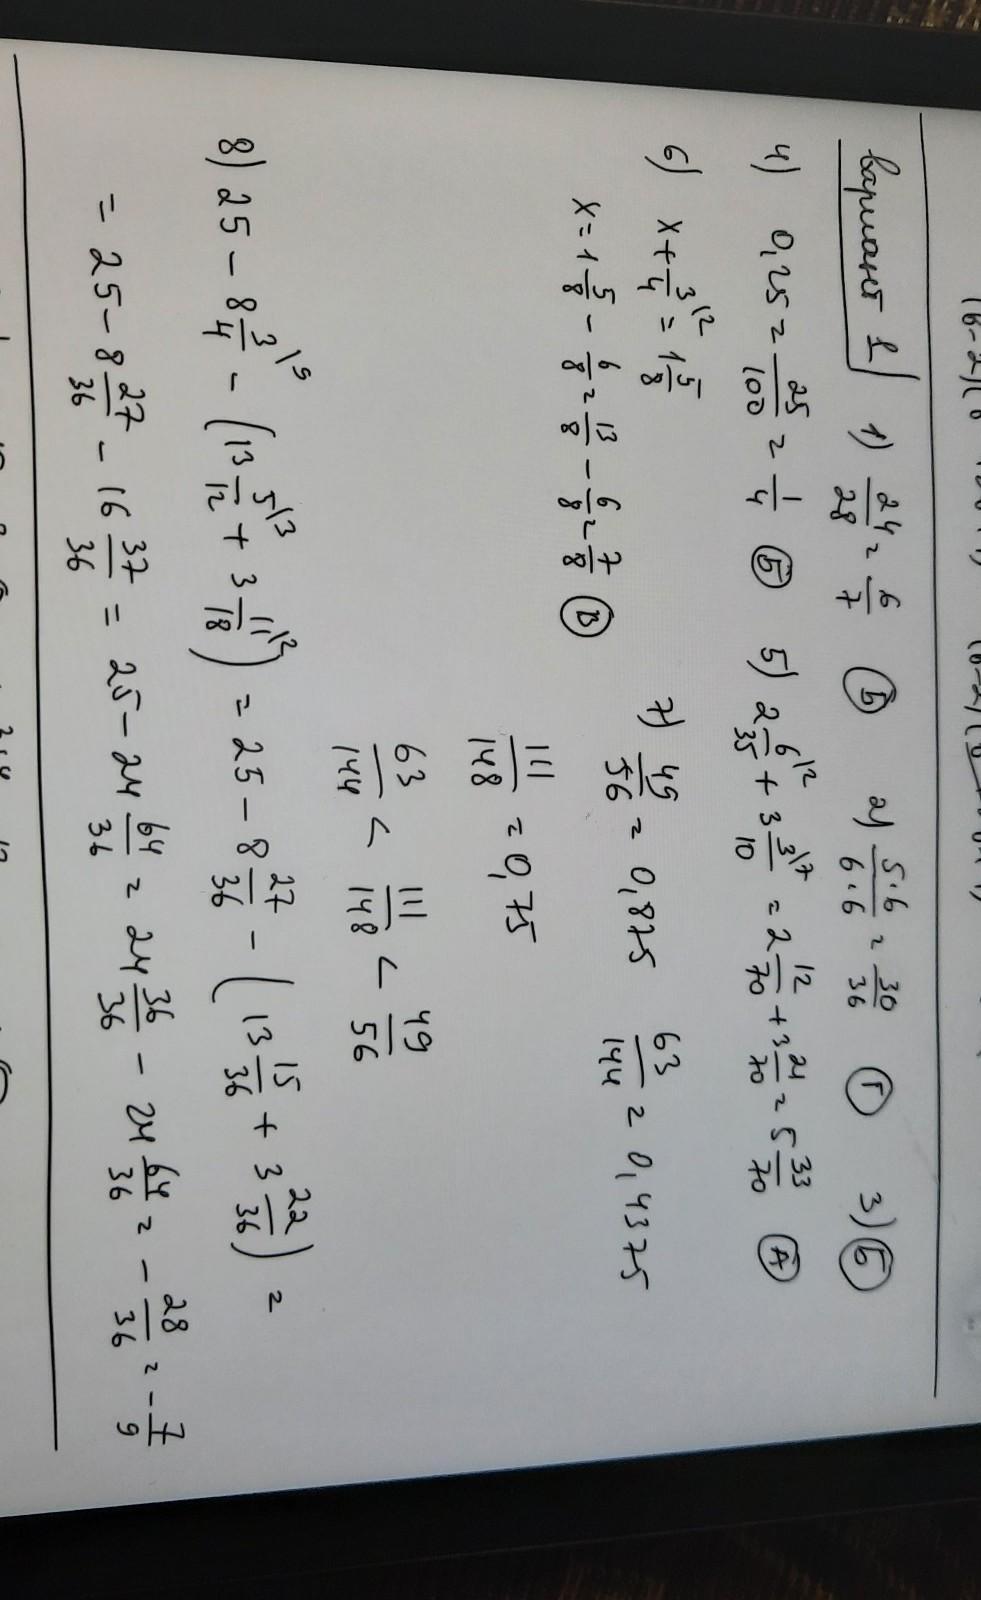 Вариант 1 1) 24/28 = 6/7 (Б) 2) 5·6/6·6 = 30/36 (Г) 3) (Б)
4) 0,25 = 25/100 = 1/4 (Б) 5) 2 6/35 \2 + 3 3/10 \7 = 2 12/70 + 3 21/70 = 5 33/70 (А)
6) x + 3/4 \2 = 1 5/8 7) 49/56 = 0,875 63/144 = 0,4375
x = 1 5/8 - 6/8 = 13/8 - 6/8 = 7/8 (В)
111/148 = 0,75
63/144 < 111/148 < 49/56
8) 25 - 8 3/4 \9 - (13 5/12 \3 + 3 11/18 \2) = 25 - 8 27/36 - (13 15/36 + 3 22/36) =
= 25 - 8 27/36 - 16 37/36 = 25 - 24 64/36 = 24 36/36 - 24 64/36 = - 28/36 = - 7/9